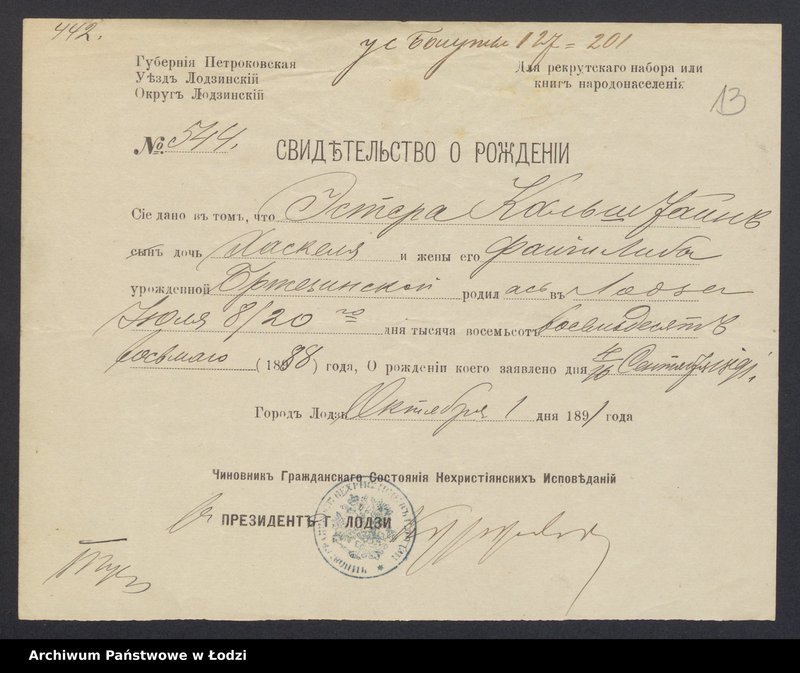 442.
ус Балуты 127 = 201
Губернія Петроковская
Уѣздъ Лодзинскій
Округъ Лодзинскій
Для рекрутскаго набора или
книгъ народонаселенія
13
№ 544.
СВИДѢТЕЛЬСТВО О РОЖДЕНІИ
Сіе дано въ томъ, что Эстера Кальштайнъ
сынъ дочь Хаскеля и жены его Файги Либы
урожденной Бржезинской родилась въ Лодзи
Іюля 8/20 го дня тысяча восемьсотъ восемьдесятъ
восьмаго (1888) года, О рожденіи коего заявлено дня Сентября
Городъ Лодзь Октября 1 дня 1891 года
Чиновникъ Гражданскаго Состоянія Нехристіянскихъ Исповѣданій
ПРЕЗИДЕНТЪ Г. ЛОДЗИ
Archiwum Państwowe w Łodzi